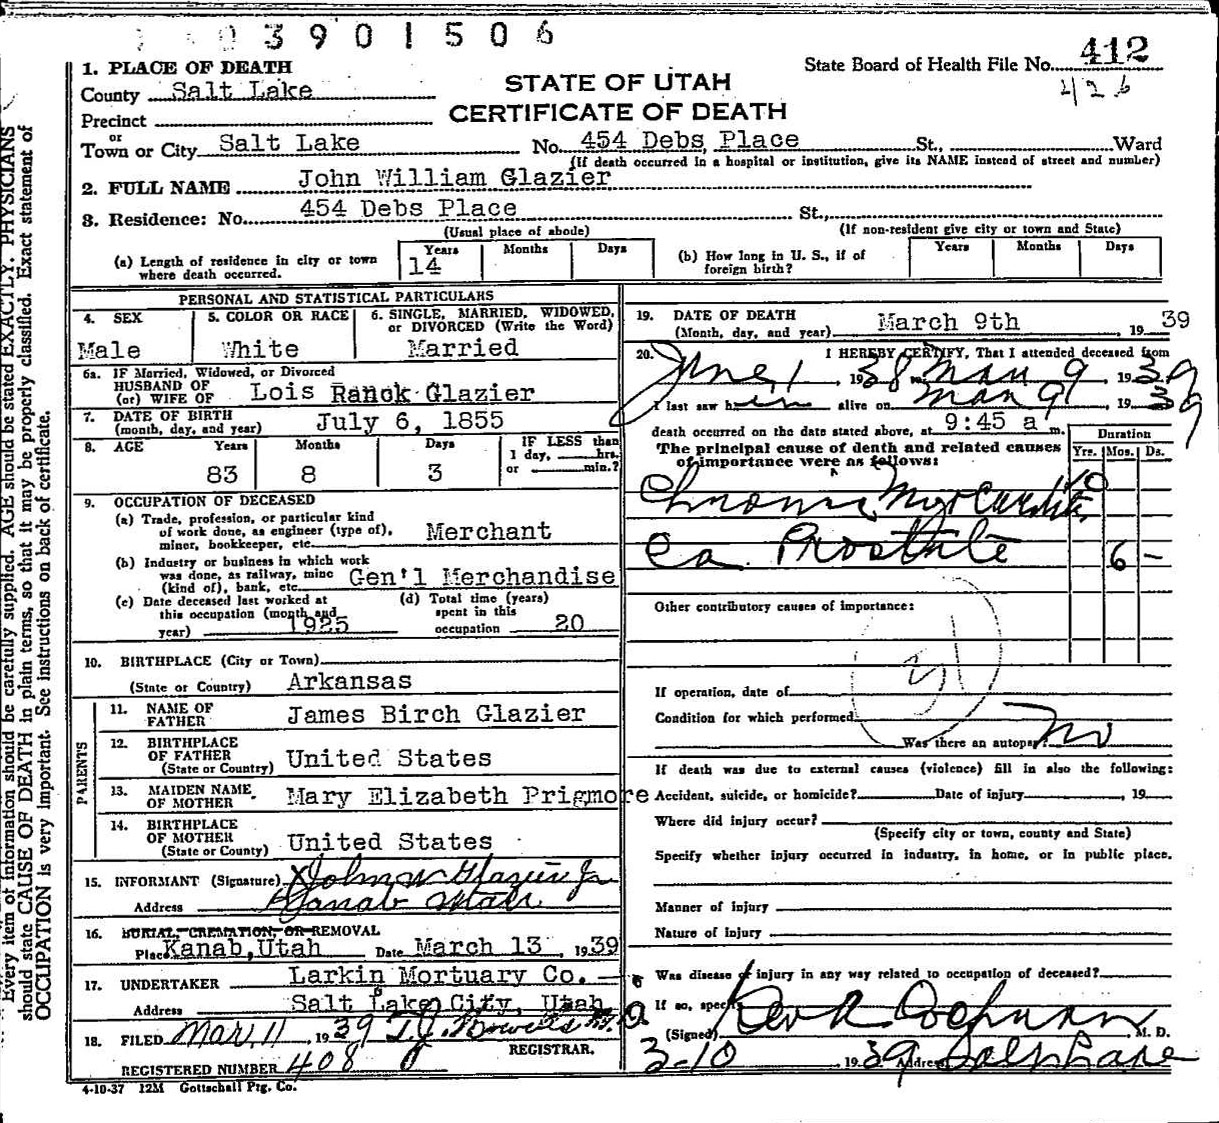 3901506
State Board of Health File No. 412
426
STATE OF UTAH
CERTIFICATE OF DEATH
1. PLACE OF DEATH
County Salt Lake
Precinct
or
Town or City Salt Lake No. 454 Debs Place St., Ward
(If death occurred in a hospital or institution, give its NAME instead of street and number)
2. FULL NAME John William Glazier
3. Residence: No. 454 Debs Place St.,
(Usual place of abode) (If non-resident give city or town and State)
(a) Length of residence in city or town where death occurred. Years 14 Months Days
(b) How long in U. S., if of foreign birth? Years Months Days
PERSONAL AND STATISTICAL PARTICULARS
4. SEX Male
5. COLOR OR RACE White
6. SINGLE, MARRIED, WIDOWED, or DIVORCED (Write the Word) Married
6a. IF Married, Widowed, or Divorced
HUSBAND OF
(or) WIFE OF Lois Ranck Glazier
7. DATE OF BIRTH
(month, day, and year) July 6, 1855
8. AGE Years 83 Months 8 Days 3
IF LESS than
1 day, hrs.
or min.?
9. OCCUPATION OF DECEASED
(a) Trade, profession, or particular kind
of work done, as engineer (type of),
miner, bookkeeper, etc. Merchant
(b) Industry or business in which work
was done, as railway, mine
(kind of), bank, etc. Gen'l Merchandise
(c) Date deceased last worked at
this occupation (month and
year) 1925
(d) Total time (years)
spent in this
occupation 20
10. BIRTHPLACE (City or Town)
(State or Country) Arkansas
PARENTS
11. NAME OF
FATHER James Birch Glazier
12. BIRTHPLACE
OF FATHER
(State or Country) United States
13. MAIDEN NAME
OF MOTHER Mary Elizabeth Prigmore
14. BIRTHPLACE
OF MOTHER
(State or Country) United States
15. INFORMANT (Signature) X John W Glazier Jr
Address Kanab Utah
16. BURIAL, CREMATION, OR REMOVAL
Place Kanab, Utah Date March 13, 1939
17. UNDERTAKER Larkin Mortuary Co.
Address Salt Lake City, Utah
18. FILED Mar 11, 1939 T.J. Howells M.D.
REGISTRAR.
REGISTERED NUMBER 408
4-10-37 12M Gottschall Ptg. Co.
19. DATE OF DEATH
(Month, day, and year) March 9th, 1939
20. I HEREBY CERTIFY, That I attended deceased from
June 1, 1938 Mar 9, 1939
I last saw him alive on Mar 9, 1939
death occurred on the date stated above, at 9:45 a m.
The principal cause of death and related causes
of importance were as follows:
Duration
Yrs. Mos. Ds.
Chronic Myocarditis 10
Ca Prostate 6 -
Other contributory causes of importance:
If operation, date of
Condition for which performed
Was there an autopsy? No
If death was due to external causes (violence) fill in also the following:
Accident, suicide, or homicide? Date of injury , 19
Where did injury occur?
(Specify city or town, county and State)
Specify whether injury occurred in industry, in home, or in public place.
Manner of injury
Nature of injury
Was disease or injury in any way related to occupation of deceased?
If so, specify
(Signed) Cochran M. D.
3-10, 1939 Address Salt Lake
Every item of information should be carefully supplied. AGE should be stated EXACTLY. PHYSICIANS
should state CAUSE OF DEATH in plain terms, so that it may be properly classified. Exact statement of
OCCUPATION is very important. See instructions on back of certificate.